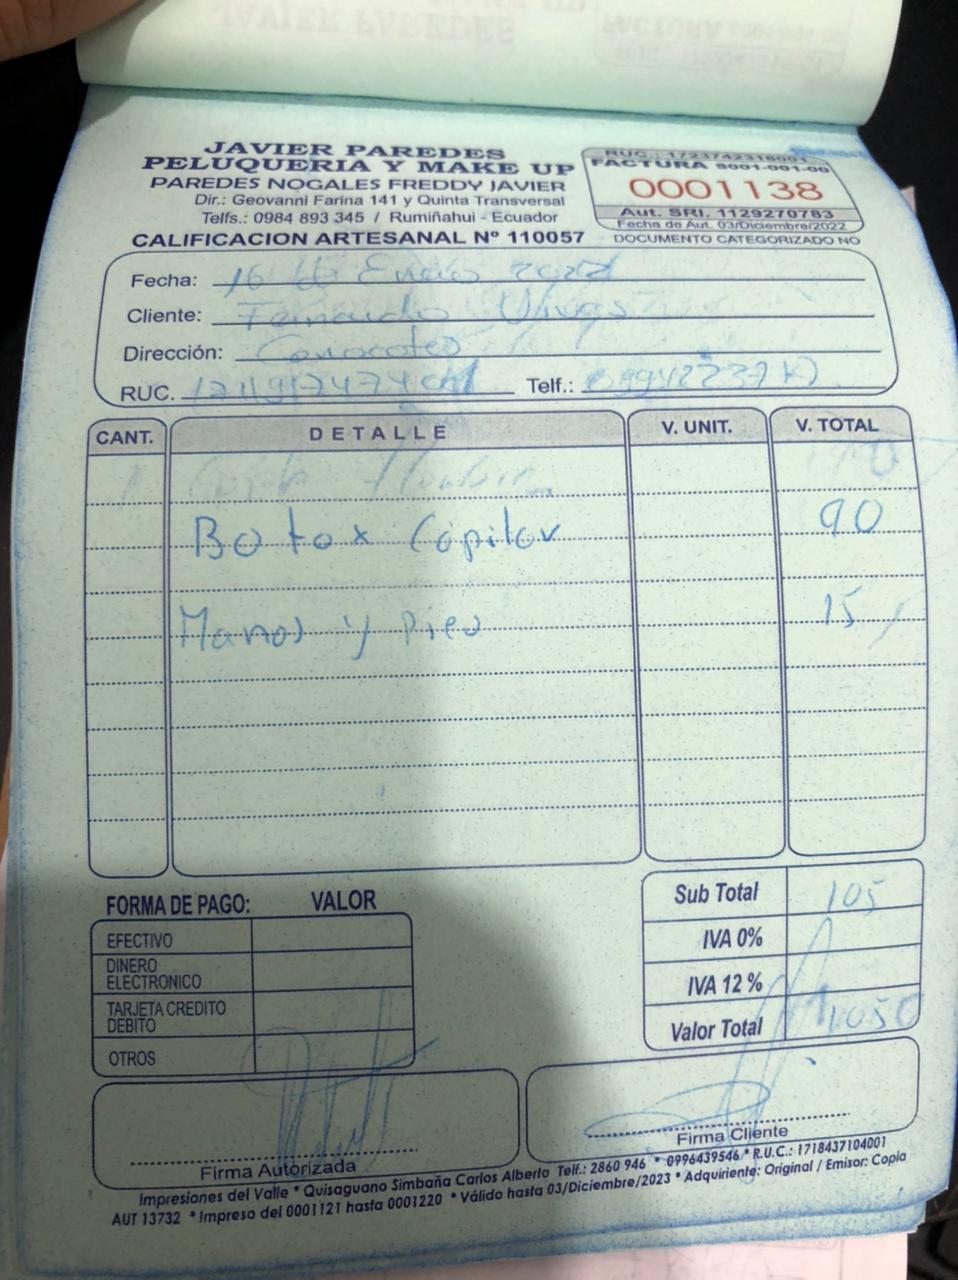 JAVIER PAREDES
PELUQUERIA Y MAKE UP
PAREDES NOGALES FREDDY JAVIER
Dir.: Geovanni Farina 141 y Quinta Transversal
Telfs.: 0984 893 345 / Rumiñahui - Ecuador
CALIFICACION ARTESANAL Nº 110057
RUC.: 1723742316001
FACTURA S001-001-00
0001138
Aut. SRI. 1129270783
Fecha de Aut. 03/Diciembre/2022
DOCUMENTO CATEGORIZADO NO
Fecha: 16 de Enero
Cliente: Fernando
Dirección:
RUC.
Telf.:
CANT. DETALLE V. UNIT. V. TOTAL
Botox Capilar 90
Manos y Pies 15
FORMA DE PAGO: VALOR
EFECTIVO
DINERO ELECTRONICO
TARJETA CREDITO DEBITO
OTROS
Sub Total 105
IVA 0%
IVA 12 %
Valor Total
Firma Autorizada
Firma Cliente
Impresiones del Valle * Quisaguano Simbaña Carlos Alberto Telf.: 2860 946 * 0996439546 * R.U.C.: 1718437104001
AUT 13732 * Impreso del 0001121 hasta 0001220 * Válido hasta 03/Diciembre/2023 * Adquiriente: Original / Emisor: Copia